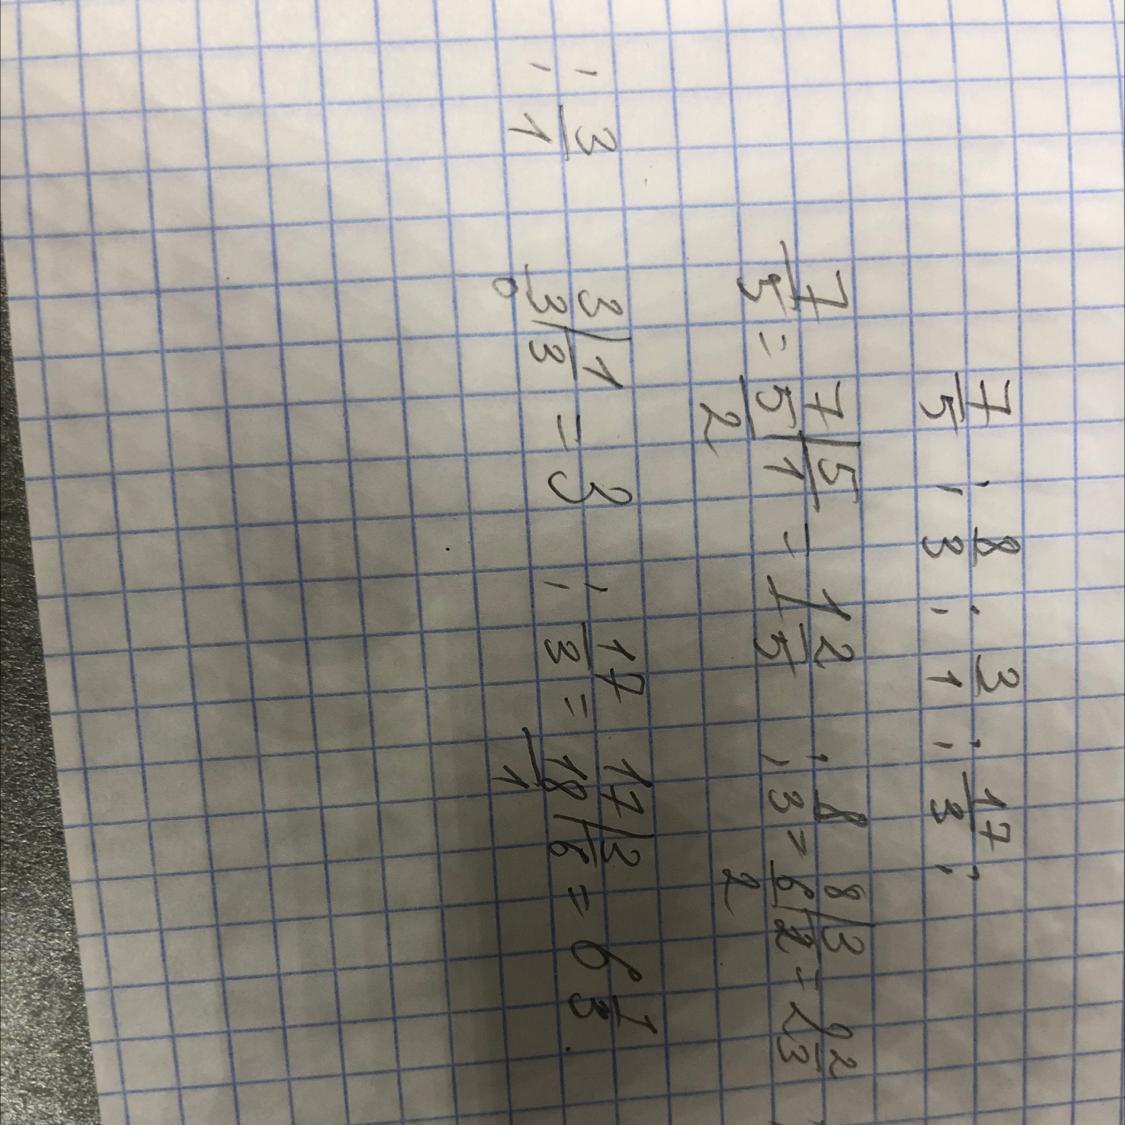 7/5 ; 8/3 ; 3/1 ; 17/3 ;
7/5 = 7 | 5 = 1 2/5 ; 8/3 = 8 | 3 = 2 2/3
5 | 1 6 | 2
2 2
; 3/1 3 | 1 = 3 ; 17/3 = 17 | 3 = 6 1/3
3 | 3 18 | 6
0 1